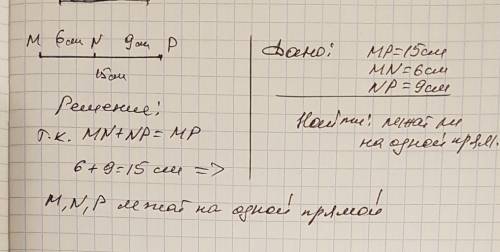 M 6см N 9см P
15см
Решение:
т.к. MN+NP=MP
6+9=15 см =>
M, N, P лежат на одной прямой
Дано: MP=15см
MN=6см
NP=9см
Найти: лежат ли
на одной прям.